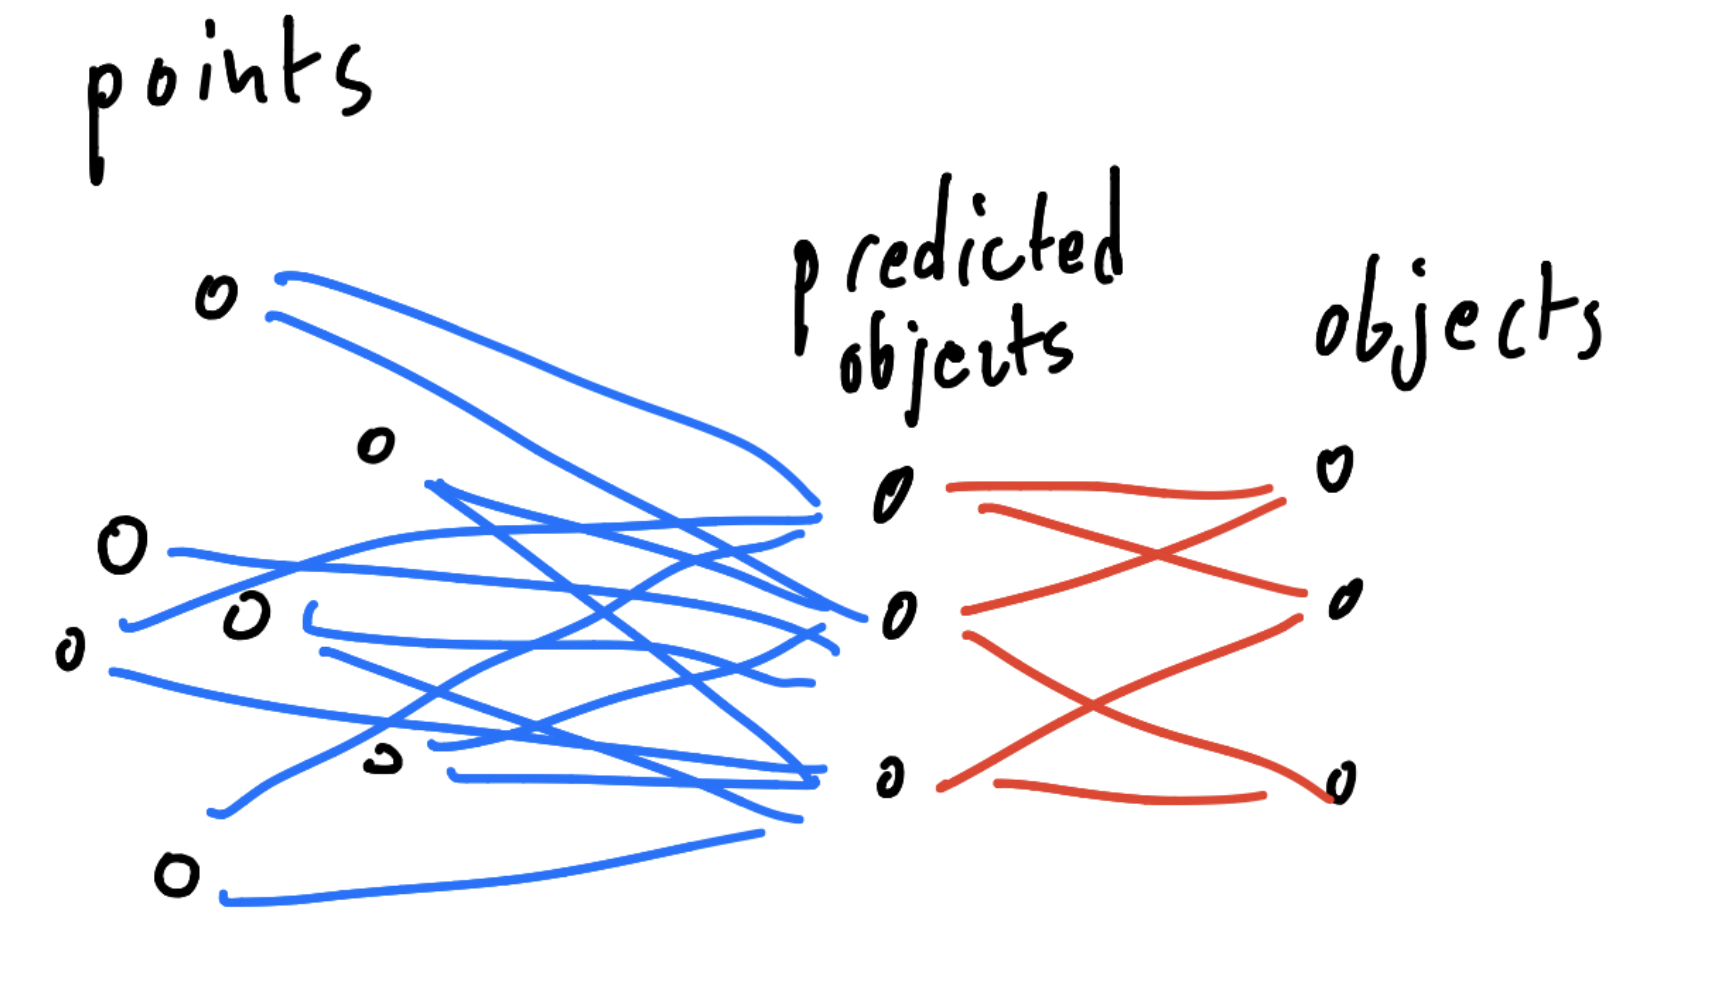 points
predicted
objects
objects